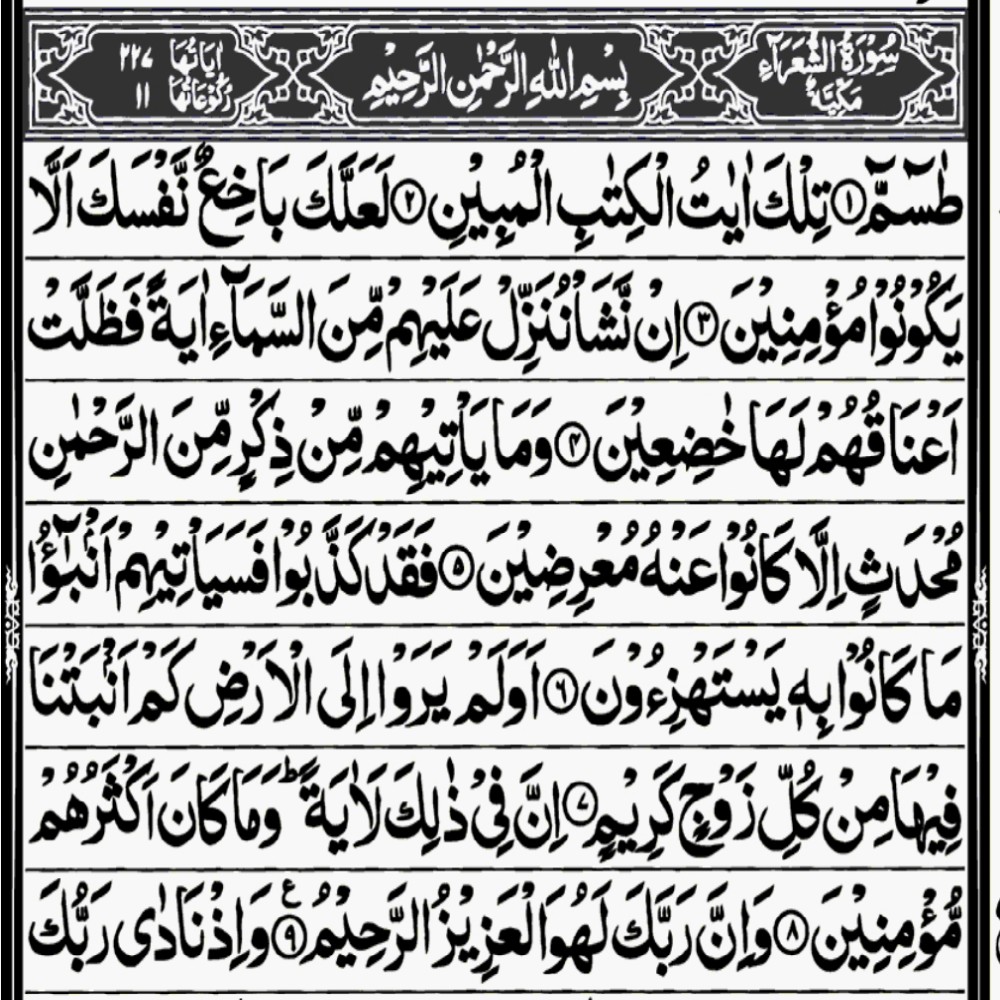 سُوْرَةُ الشُّعَرَآءِ مَكِّيَّةٌ بِسْمِ اللّٰهِ الرَّحْمٰنِ الرَّحِيْمِ اٰيَاتُهَا ٢٢٧ رُكُوْعَاتُهَا ١١
طٰسٓمّٓ ۝١ تِلْكَ اٰيٰتُ الْكِتٰبِ الْمُبِيْنِ ۝٢ لَعَلَّكَ بَاخِعٌ نَّفْسَكَ اَلَّا
يَكُوْنُوْا مُؤْمِنِيْنَ ۝٣ اِنْ نَّشَاْ نُنَزِّلْ عَلَيْهِمْ مِّنَ السَّمَآءِ اٰيَةً فَظَلَّتْ
اَعْنَاقُهُمْ لَهَا خٰضِعِيْنَ ۝٤ وَمَا يَاْتِيْهِمْ مِّنْ ذِكْرٍ مِّنَ الرَّحْمٰنِ
مُحْدَثٍ اِلَّا كَانُوْا عَنْهُ مُعْرِضِيْنَ ۝٥ فَقَدْ كَذَّبُوْا فَسَيَاْتِيْهِمْ اَنْۢبٰٓؤُا
مَا كَانُوْا بِهٖ يَسْتَهْزِءُوْنَ ۝٦ اَوَلَمْ يَرَوْا اِلَى الْاَرْضِ كَمْ اَنْۢبَتْنَا
فِيْهَا مِنْ كُلِّ زَوْجٍ كَرِيْمٍ ۝٧ اِنَّ فِيْ ذٰلِكَ لَاٰيَةً ؕ وَمَا كَانَ اَكْثَرُهُمْ
مُّؤْمِنِيْنَ ۝٨ وَاِنَّ رَبَّكَ لَهُوَ الْعَزِيْزُ الرَّحِيْمُ ۝٩ ع وَاِذْ نَادٰى رَبُّكَ